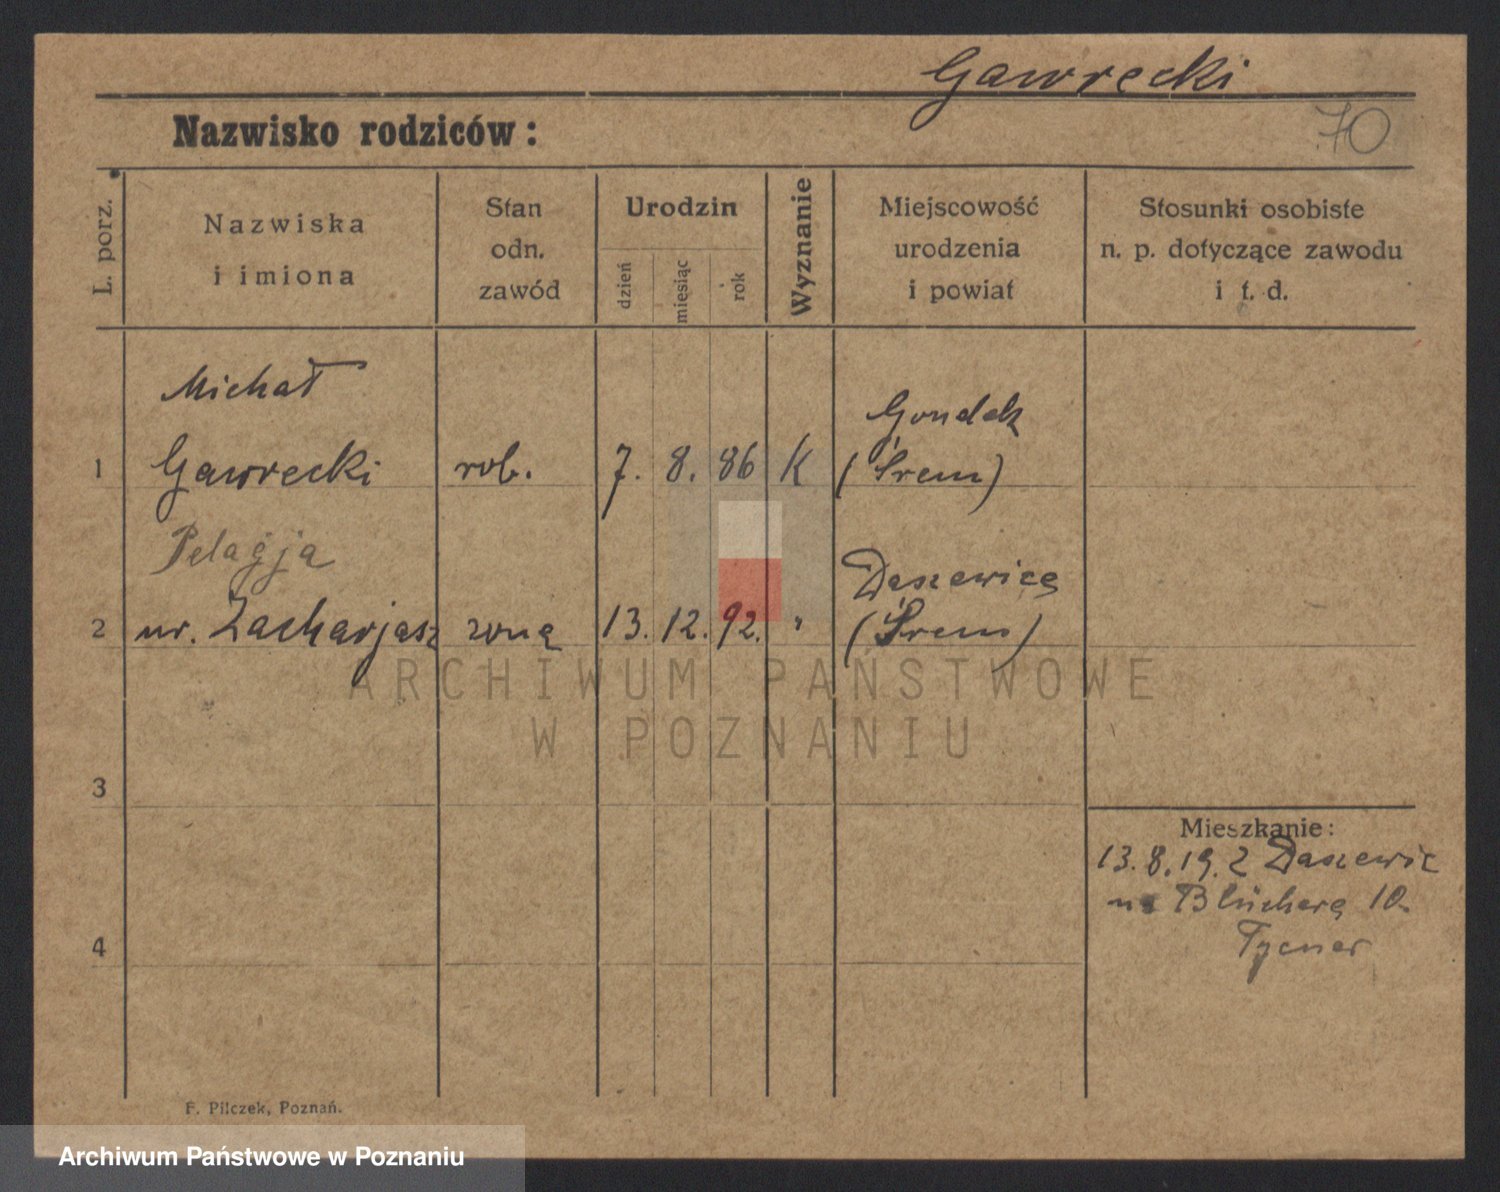 Gawrecki
70
Nazwisko rodziców:
L. porz.
Nazwiska
i imiona
Stan
odn.
zawód
Urodzin
dzień
miesiąc
rok
Wyznanie
Miejscowość
urodzenia
i powiat
Stosunki osobiste
n. p. dotyczące zawodu
i t. d.
Michał
Gondek
1 Gawrecki rob. 7. 8. 86 K (Śrem)
Pelagja
Daszewice
2 ur. Zacharjasz żona 13. 12. 92. " (Śrem)
3
Mieszkanie:
13.8.19. z Daszewic
Blüchera 10.
4
F. Pilczek, Poznań.
ARCHIWUM PAŃSTWOWE
W POZNANIU
Archiwum Państwowe w Poznaniu